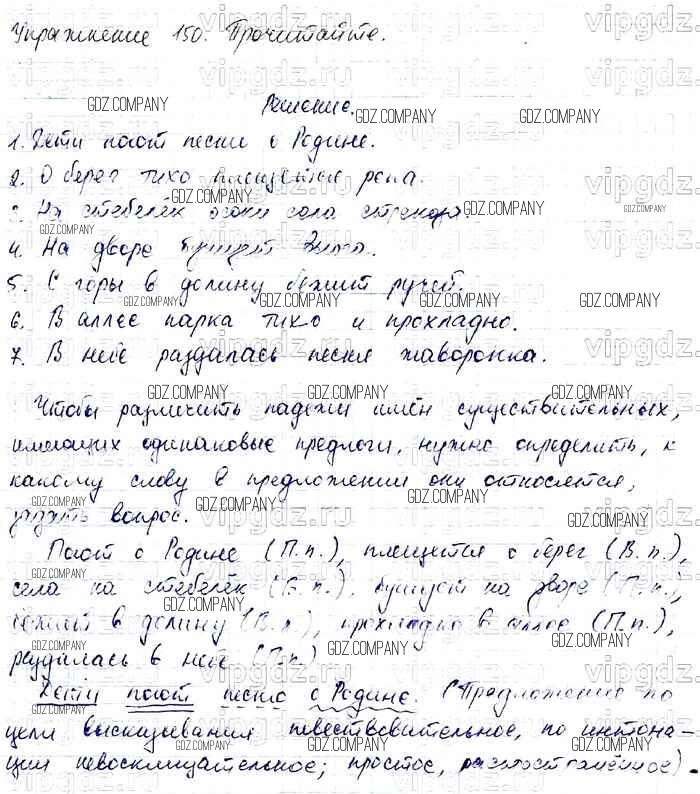 Упражнение 150. Прочитайте.
Решение.
1. Дети поют песни о Родине.
2. О берег тихо плещется река.
3. На стебелёк осоки села стрекоза.
4. На дворе бушует Зима.
5. С горы в долину бежит ручей.
6. В аллее парка тихо и прохладно.
7. В небе раздалась песня жаворонка.
Чтобы различить падежи имён существительных,
имеющих одинаковые предлоги, нужно определить, к
какому слову в предложении они относятся,
задать вопрос.
Поют о Родине (П.п.), плещется о берег (В.п.),
села на стебелёк (В.п.), бушует на дворе (П.п.),
бежит в долину (В.п.), прохладно в аллее (П.п.),
раздалась в небе (П.п.)
Дети поют песню о Родине. (Предложение по
цели высказывания повествовательное, по интона-
ции невосклицательное; простое, распространённое).